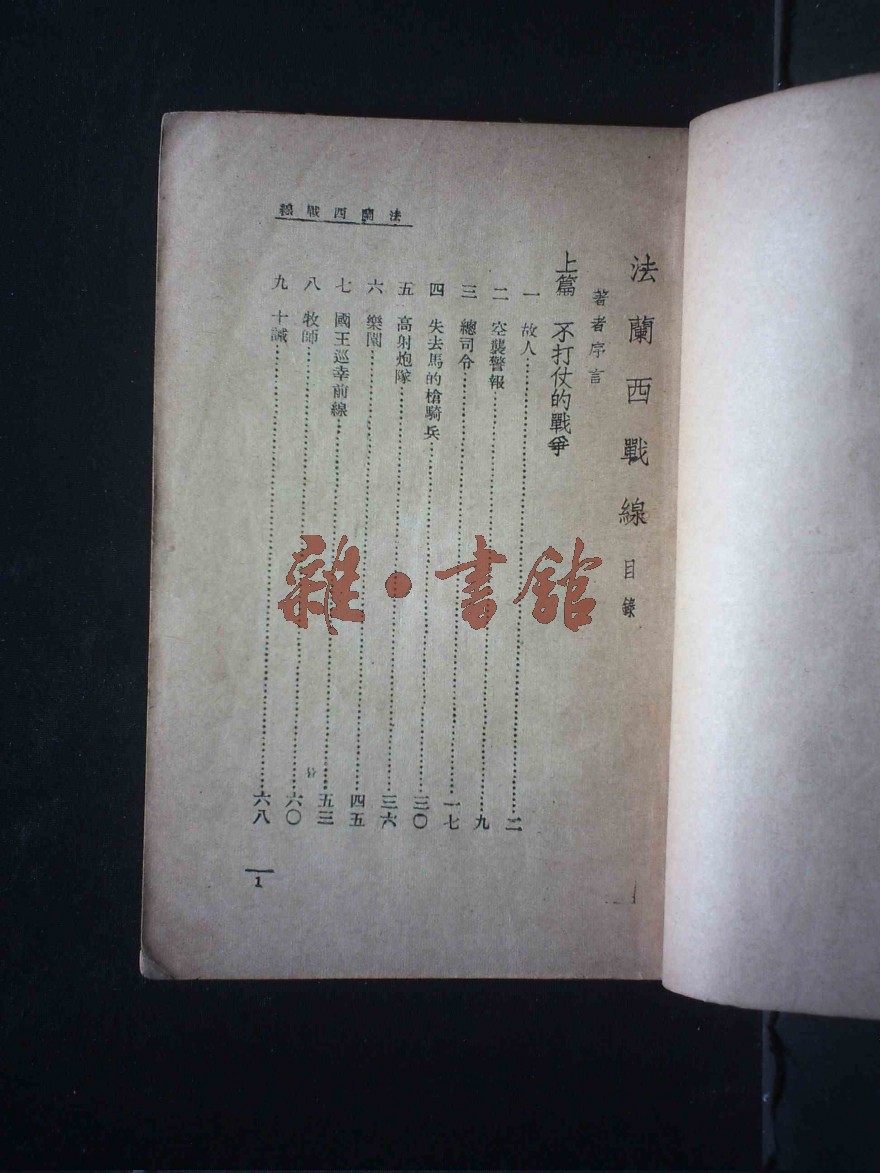 法蘭西戰線
法蘭西戰線 目錄
著者序言
上篇 不打仗的戰爭
一 故人……二
二 空襲警報……九
三 總司令……一七
四 失去馬的槍騎兵……三〇
五 高射炮隊……三六
六 樂園……四五
七 國王巡幸前線……五三
八 牧師……六〇
九 十誡……六八
1
雜·書館